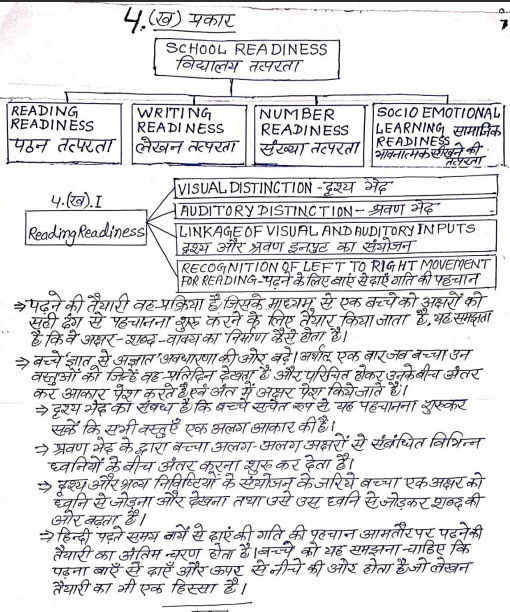 4. (ख) प्रकार
SCHOOL READINESS
विद्यालय तत्परता
READING
READINESS
पठन तत्परता
WRITING
READINESS
लेखन तत्परता
NUMBER
READINESS
संख्या तत्परता
SOCIO EMOTIONAL
LEARNING सामाजिक
READINESS
भावनात्मक सीखने की
तत्परता
4.(ख).I
Reading Readiness
VISUAL DISTINCTION - दृश्य भेद
AUDITORY DISTINCTION - श्रवण भेद
LINKAGE OF VISUAL AND AUDITORY INPUTS
दृश्य और श्रवण इनपुट का संयोजन
RECOGNITION OF LEFT TO RIGHT MOVEMENT
FOR READING - पढ़ने के लिए बाएँ से दाएँ गति की पहचान
⇒ पढ़ने की तैयारी वह प्रक्रिया है, जिसके माध्यम से एक बच्चे को अक्षरों को
सही ढंग से पहचानना शुरू करने के लिए तैयार किया जाता है, यह समझाता
है कि वे अक्षर-शब्द-वाक्य का निर्माण कैसे होता है।
⇒ बच्चे 'ज्ञात से अज्ञात' अवधारणा की ओर बढ़े। अर्थात् एक बार जब बच्चा उन
वस्तुओं को जिन्हें वह प्रतिदिन देखता है और परिचित होकर उनके बीच अंतर
कर आकार पेश करते है, एवं अंत में अक्षर पेश किये जाते हैं।
⇒ दृश्य भेद का संबंध है कि बच्चे सचेत रूप से यह पहचानना शुरू कर
सकें कि सभी वस्तुएँ एक अलग आकार की है।
⇒ श्रवण भेद के द्वारा बच्चा अलग-अलग अक्षरों से संबंधित विभिन्न
ध्वनियों के बीच अंतर करना शुरू कर देता है।
⇒ दृश्य और श्रव्य निविष्टियों के संयोजन के जरिये बच्चा एक अक्षर को
ध्वनि से जोड़ना और देखना तथा उसे उस ध्वनि से जोड़कर शब्द की
ओर बढ़ता है।
⇒ हिन्दी पढ़ते समय बायें से दाएं की गति की पहचान आमतौर पर पढ़ने की
तैयारी का अंतिम चरण होता है। बच्चे को यह समझना चाहिए कि
पढ़ना बाएँ से दाएँ और ऊपर से नीचे की ओर होता है जो लेखन
तैयारी का भी एक हिस्सा है।